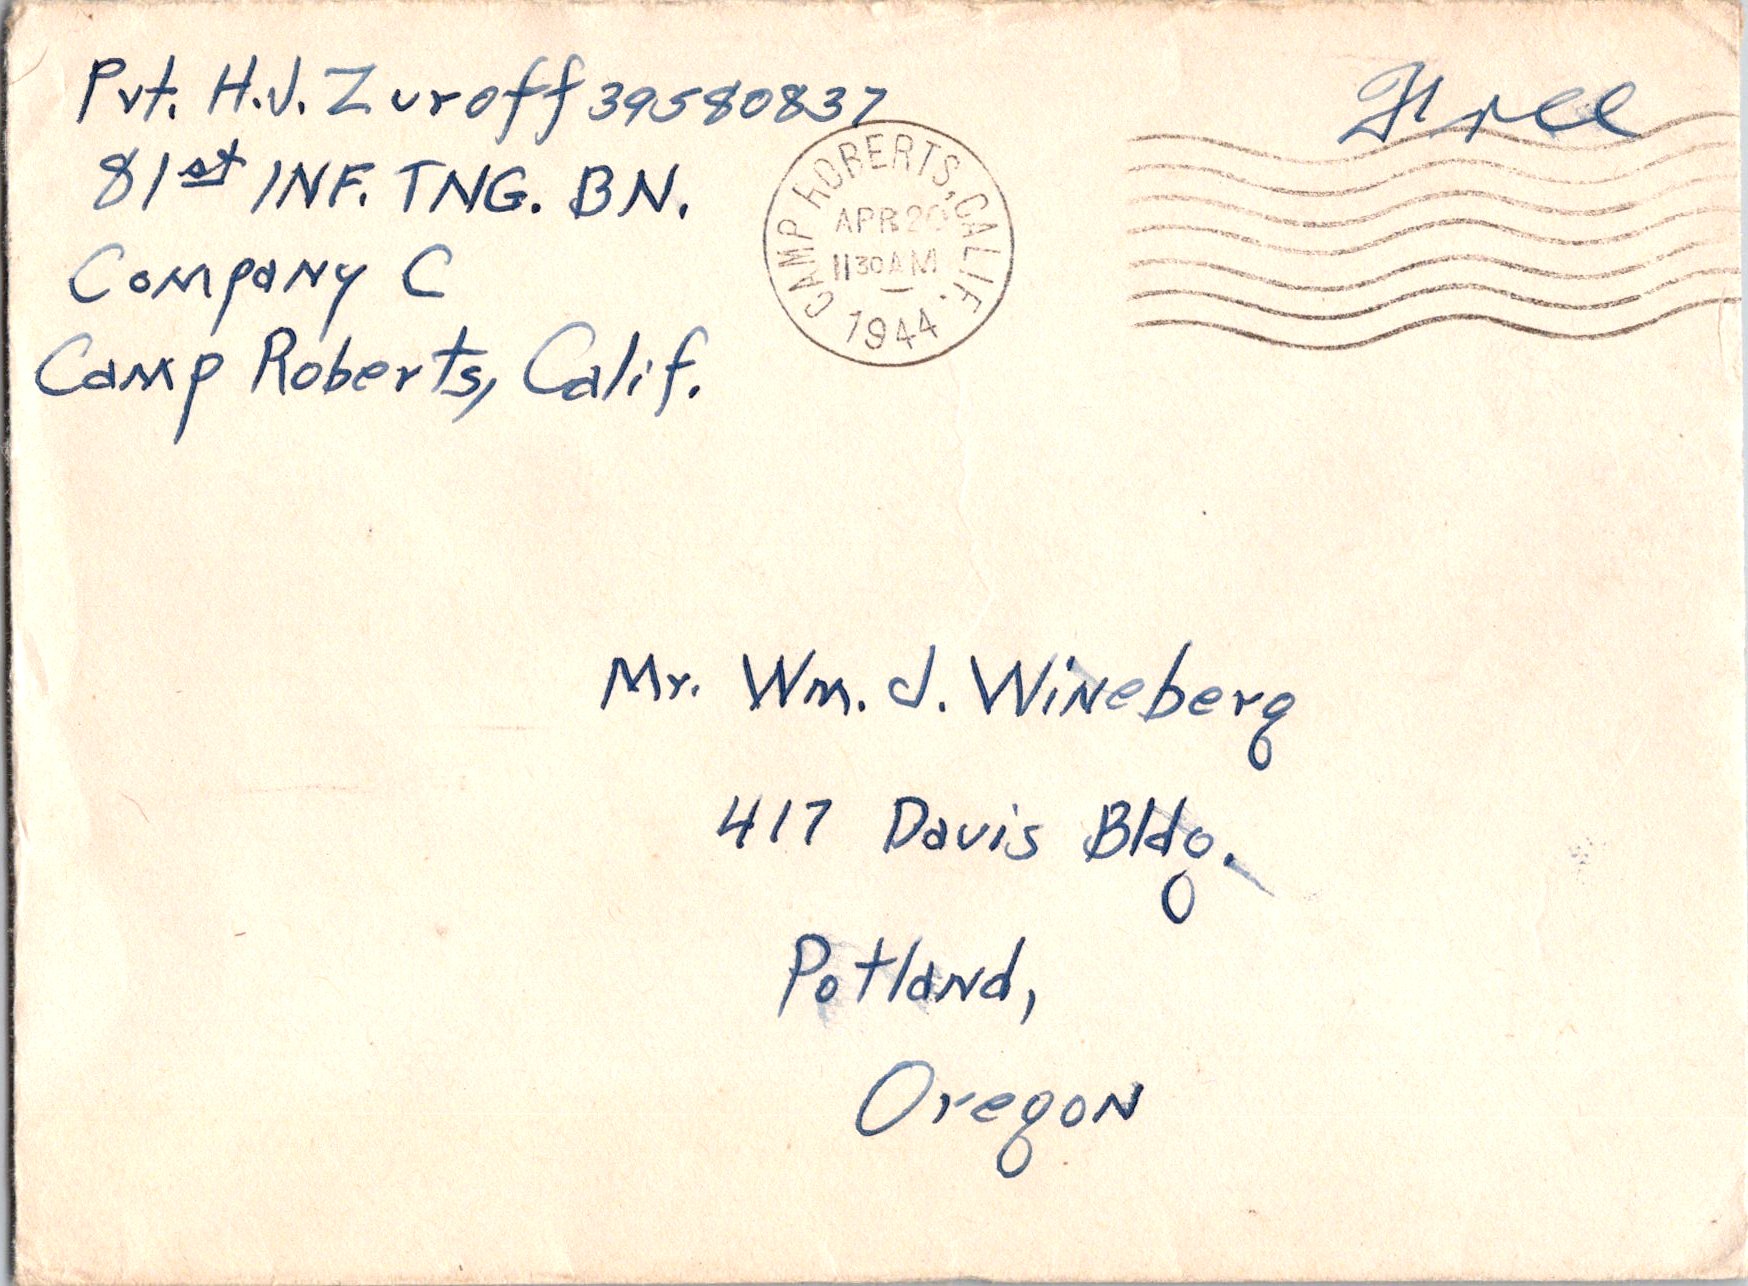 Pvt. H.J. Zuroff 39580837
81st INF. TNG. BN.
Company C
Camp Roberts, Calif.
CAMP ROBERTS, CALIF.
APR 20
11 30 AM
1944
Free
Mr. Wm. J. Wineberg
417 Davis Bldg.
Potland,
Oregon